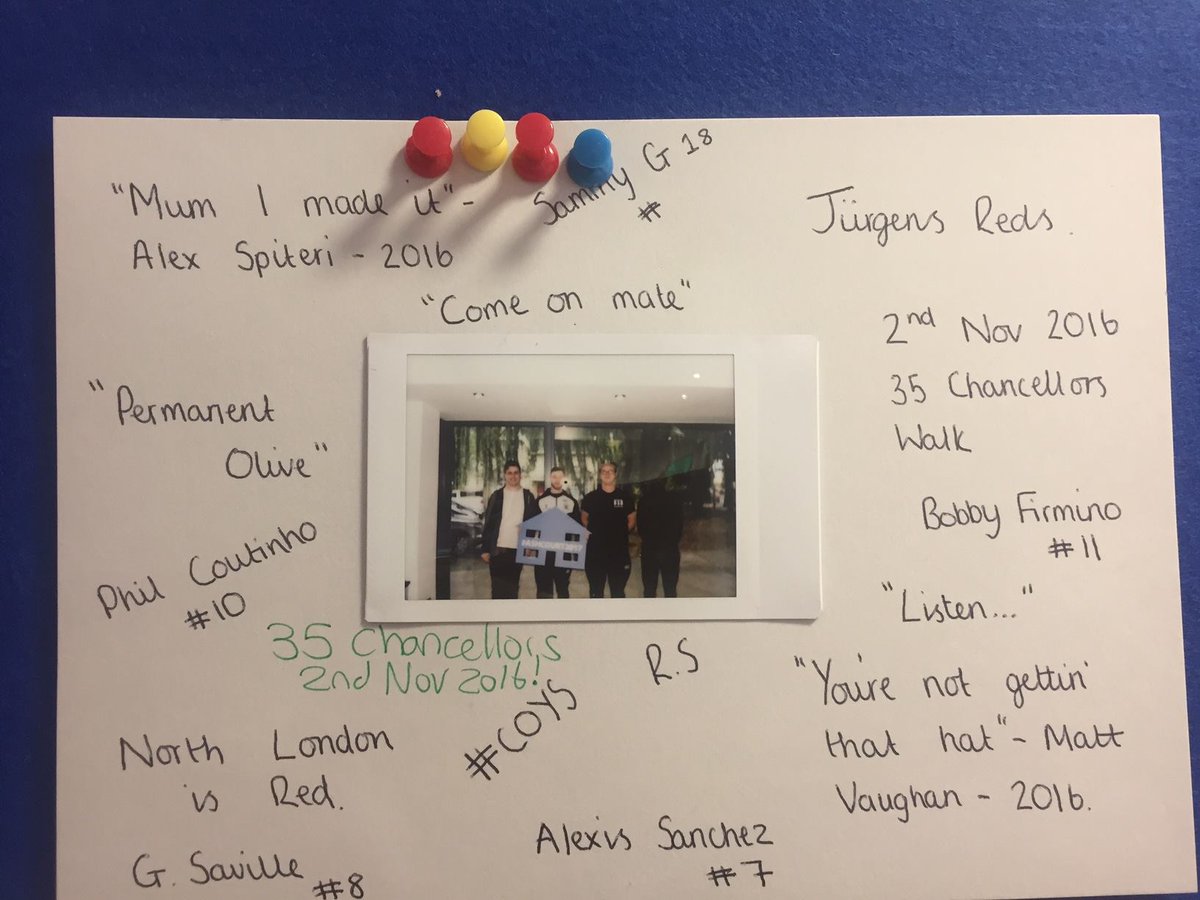 "Mum I made it"-
Alex Spiteri - 2016
Sammy G 18
#
Jürgens Reds.
"Come on mate"
2nd Nov 2016
35 Chancellors
Walk
"Permanent
Olive"
Bobby Firmino
#11
Phil Coutinho
#10
"Listen..."
35 Chancellors
2nd Nov 2016!
R.S
"You're not gettin'
that hat"- Matt
Vaughan - 2016.
#COYS
North London
is Red.
Alexis Sanchez
#7
G. Saville
#8